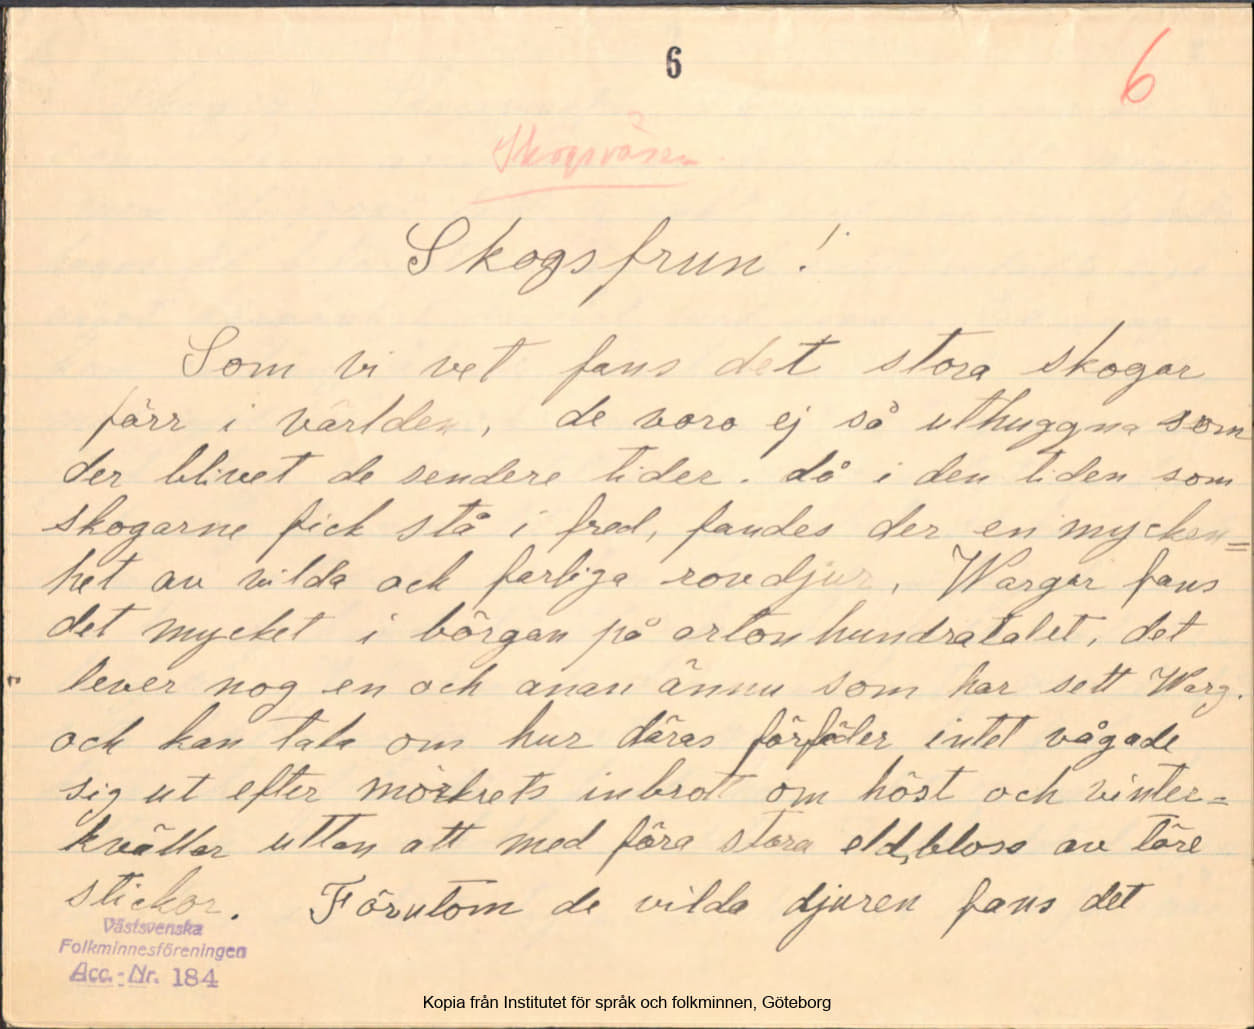 6
6
Skogsväsen
Skogsfrun!
Som vi vet fans det stora skogar
färr i världen, de voro ej så uthuggna som
der blivet de sendere tider. då i den tiden som
skogarne fick stå i fred, fandes der en mycken=
het av vilda ock farliga rovdjur. Wargar fans
det mycket i börgan på artonhundratalet, det
lever nog en och anan ännu som har sett Warg.
och kan tala om hur däras förfäder intet vågade
sig ut efter mörkrets inbrott om höst och vinter=
kvällar uttan att med föra stora eldbloss av töre
stickor. Förutom de vilda djuren fans det
Västsvenska
Folkminnesföreningen
Acc.-Nr. 184
Kopia från Institutet för språk och folkminnen, Göteborg